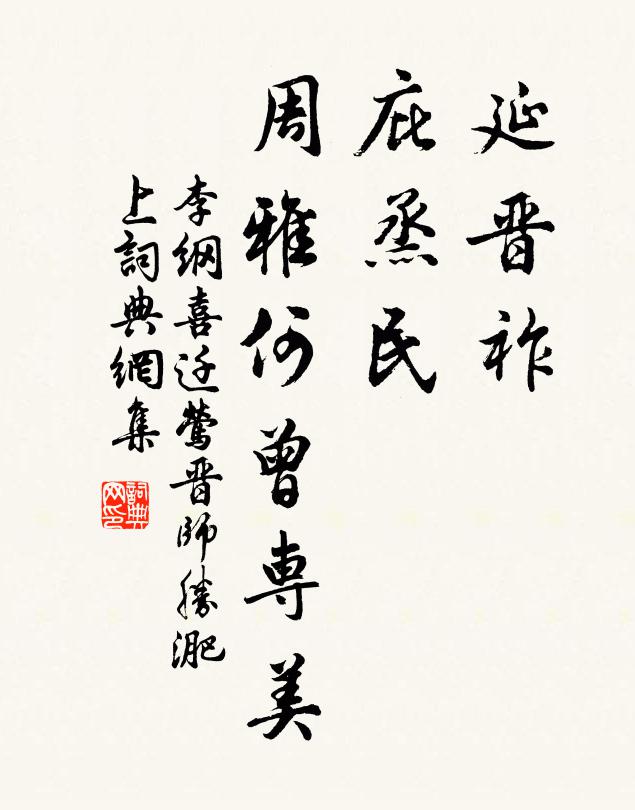 延晋祚
庇烝民
周雅何曾專美
李綱喜迁鶯晋師勝淝
上詞典網集
詞典网印